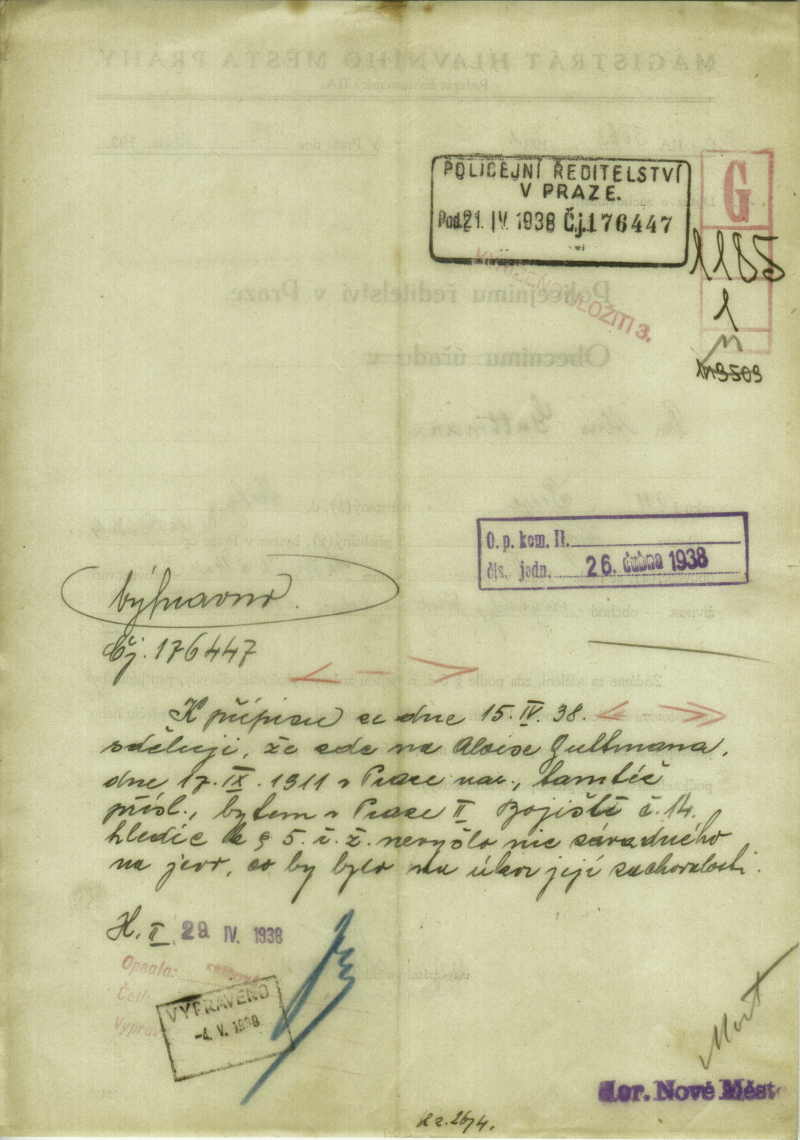 POLICEJNÍ ŘEDITELSTVÍ
V PRAZE.
Pod. 21. IV. 1938 Č.j. 176447
G
1185
1
ULOŽITI 3.
O. p. kom. II.
čís. jedn. 26. dubna 1938
Čj. 176447
K přípisu ze dne 15. IV. 38.
sděluji, že zde na Aloise Guttmana,
dne 17. IX. 1911 v Praze nar., tamtéž
přísl., bytem v Praze II Bojiště č. 14.
hledíc k § 5. ž. ř. nevyšlo nic závadného
na jevo, co by bylo na úkor její zachovalosti.
II. 29 IV. 1938
Opsala:
VYPRAVENO
-4. V. 1938
dor. Nové Měst
26/4.